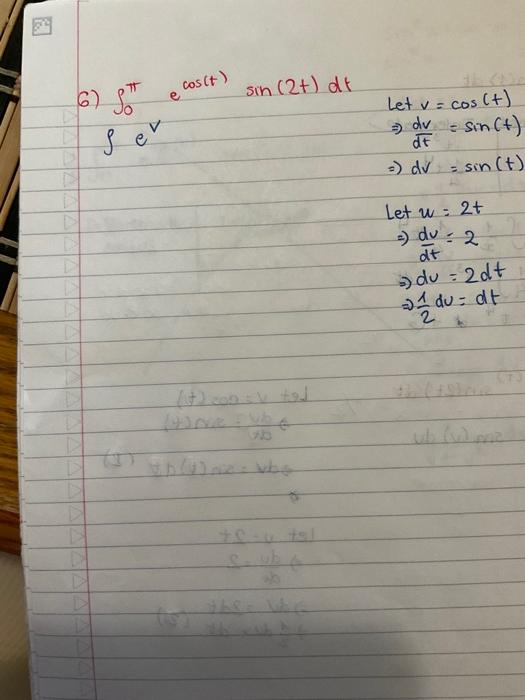 6) ∫₀^π e^cos(t) sin(2t) dt
∫ e^v
Let v = cos(t)
⇒ dv/dt = sin(t)
⇒ dv = sin(t)
Let u = 2t
⇒ du/dt = 2
⇒ du = 2dt
⇒ 1/2 du = dt